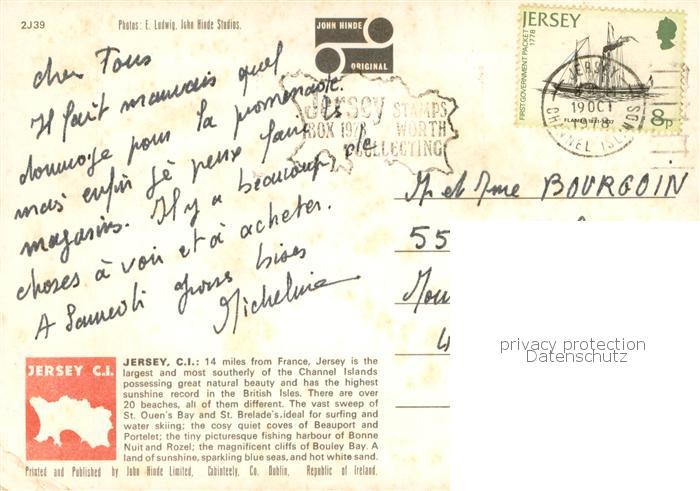 2J39
Photos: E. Ludwig, John Hinde Studios.
JOHN HINDE
ORIGINAL
JERSEY
FIRST GOVERNMENT PACKET 1778
FLAMER 1831-1837
8p
JERSEY
19 OCT
1978
CHANNEL ISLANDS
Jersey STAMPS
BOX 1978 WORTH
COLLECTING
cher Tous
Il fait mauvais quel
dommage pour la promenade.
mais enfin je peux faire les
magasins. Il y a beaucoup de
choses à voir et à acheter.
A Samedi grosses bises
Micheline
M et Mme BOURGOIN
55
privacy protection
Datenschutz
JERSEY C.I.
JERSEY, C.I.: 14 miles from France, Jersey is the
largest and most southerly of the Channel Islands
possessing great natural beauty and has the highest
sunshine record in the British Isles. There are over
20 beaches, all of them different. The vast sweep of
St. Ouen's Bay and St. Brelade's, ideal for surfing and
water skiing; the cosy quiet coves of Beauport and
Portelet; the tiny picturesque fishing harbour of Bonne
Nuit and Rozel; the magnificent cliffs of Bouley Bay. A
land of sunshine, sparkling blue seas, and hot white sand.
Printed and Published by John Hinde Limited, Cabinteely, Co. Dublin, Republic of Ireland.